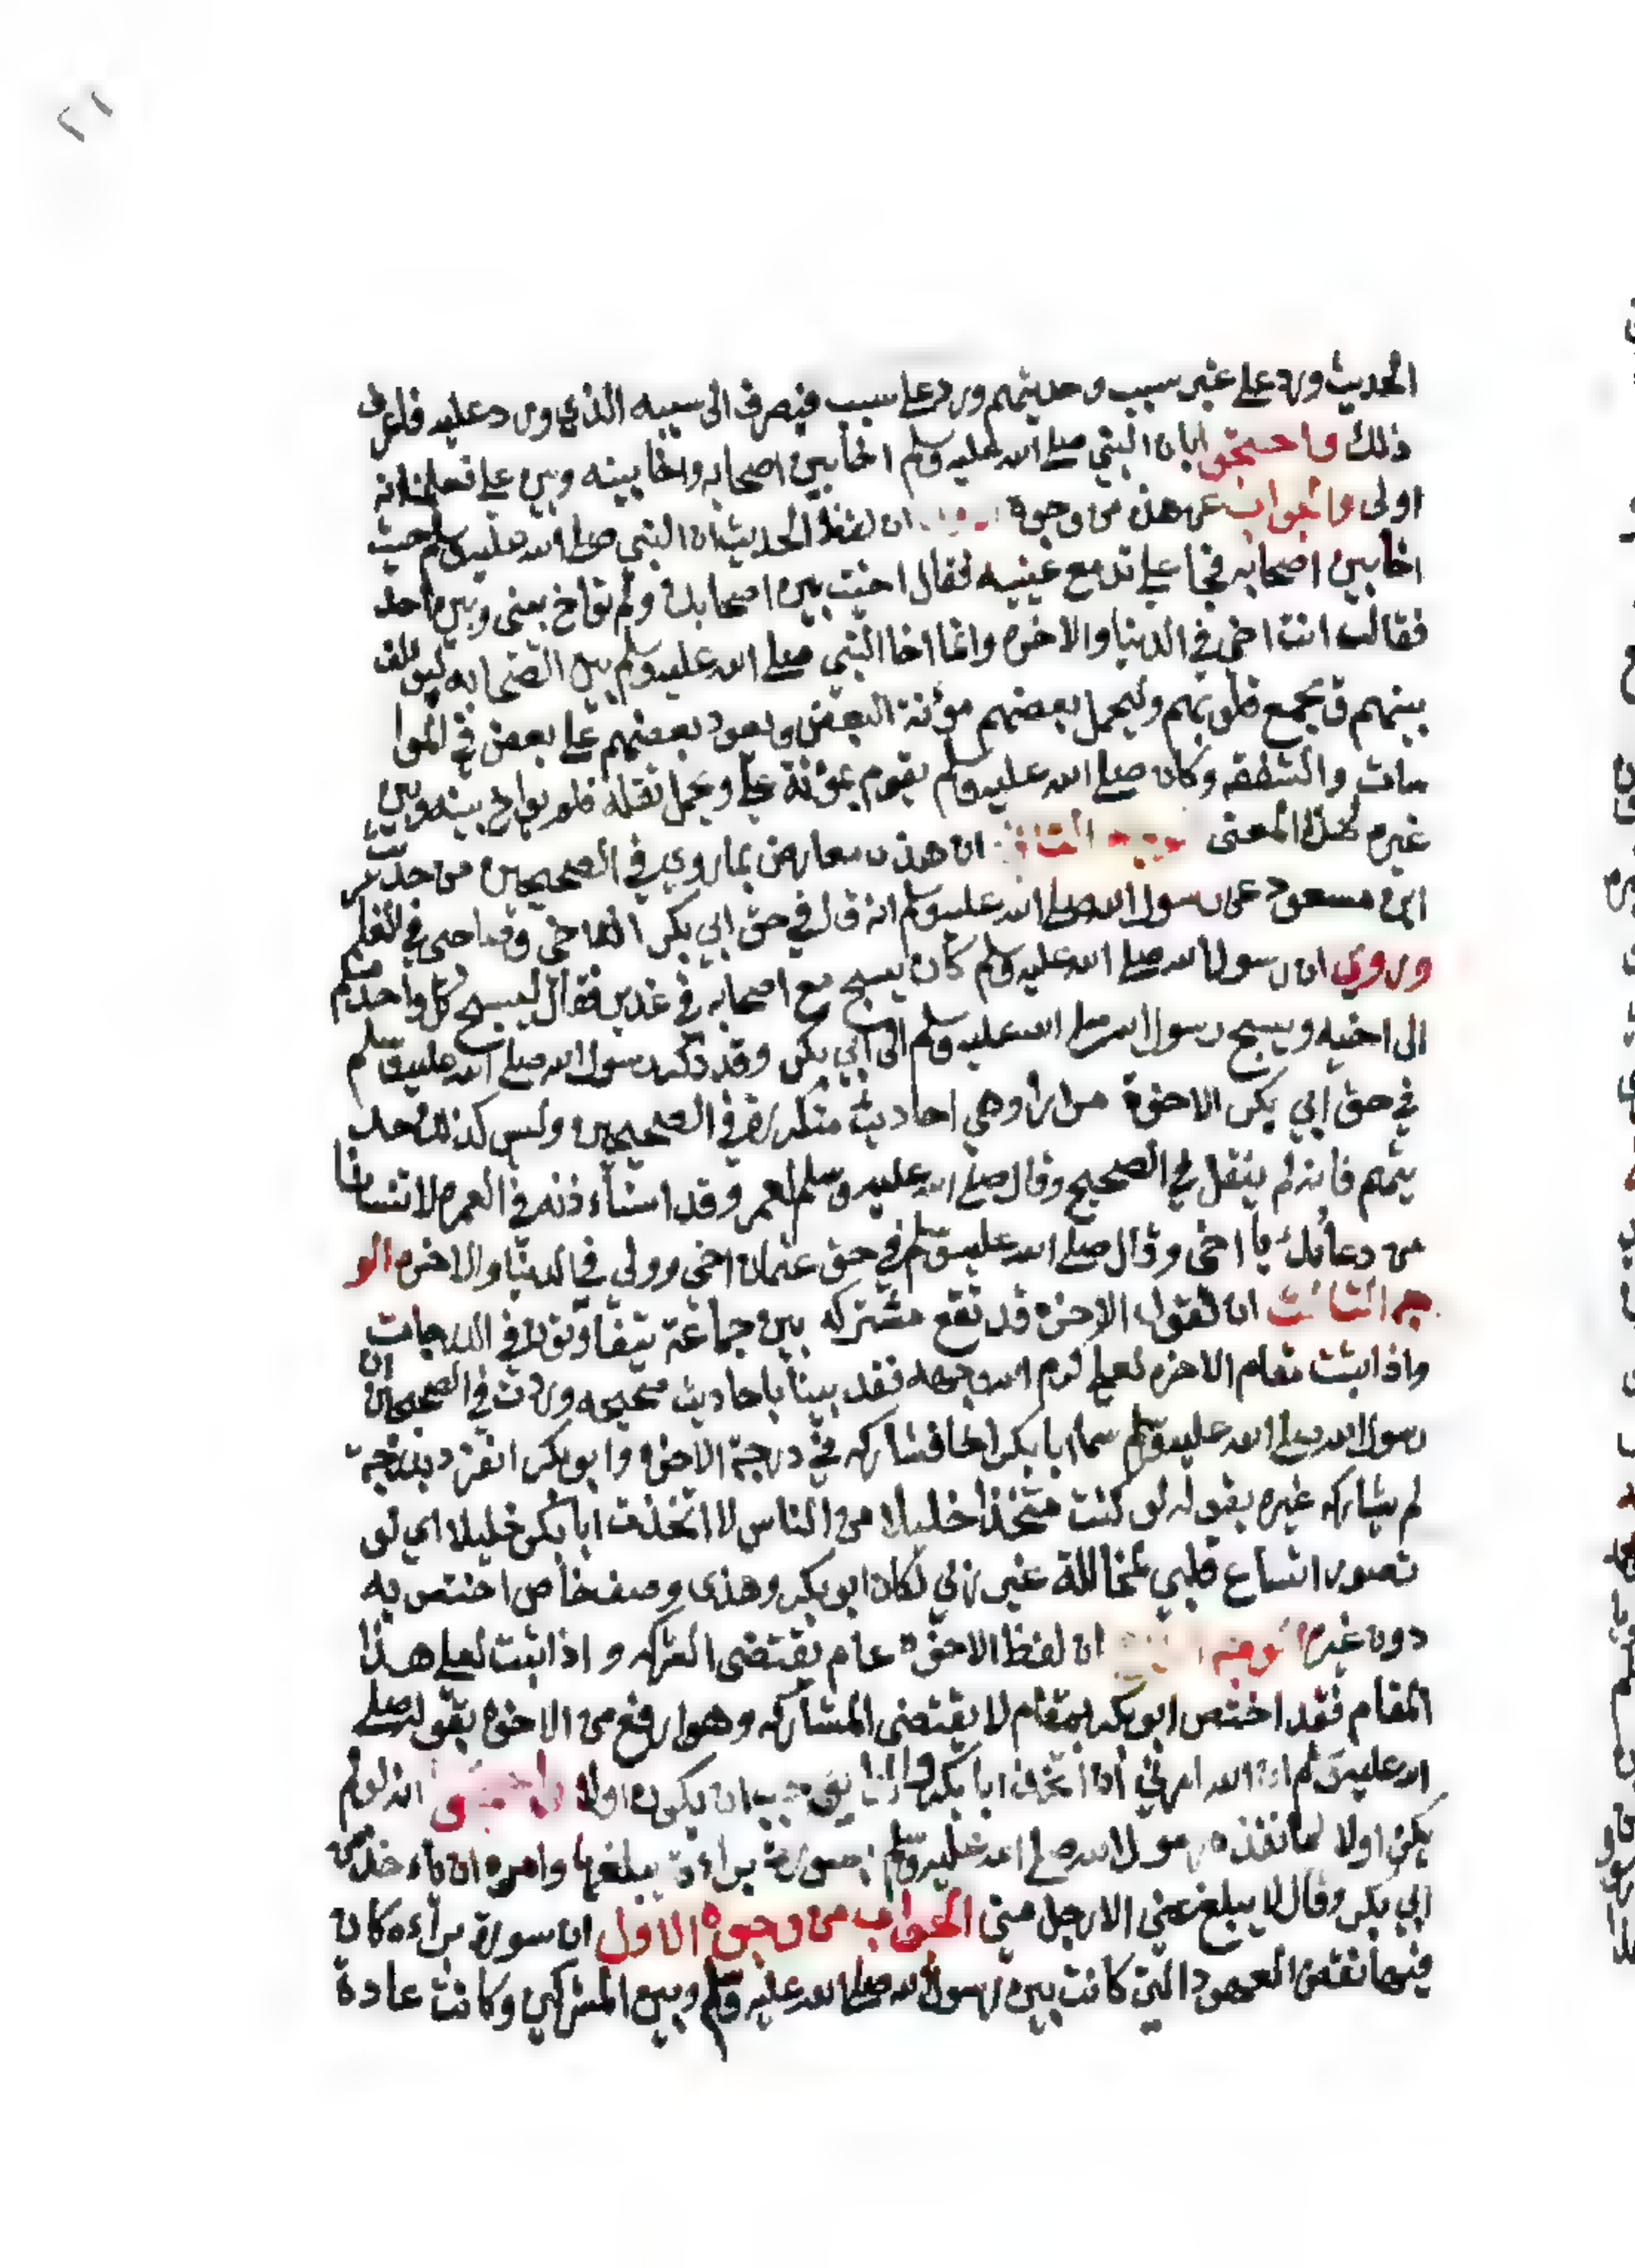 ٢١
الحديث ورد على غير سبب وحديثهم ورد على سبب فيصرف الى سببه الذي ورد عليه فاعرف
ذلك واحتجوا بان النبي صلى الله عليه وسلم اخا بين اصحابه واخا بينه وبين علي فعلمنا انه
اولى والجواب عن هذه من وجوه ان لفظ الحديث ان النبي صلى الله عليه وسلم حيث
اخا بين اصحابه فجا علي تدمع عينيه فقال اخيت بين اصحابك ولم تواخ بيني وبين احد
فقالت انت اخي في الدنيا والاخره وانما اخا النبي صلى الله عليه وسلم بين الصحابه ليولف
بينهم ويجمع قلوبهم وليحمل بعضهم مؤنة البعض ويعود بعضهم على بعض في الموا
سات والشفقه وكان صلى الله عليه وسلم يقوم بمؤنة علي ويحمل ثقله فلم يواخ بينه وبين
غيره لهذا المعنى الثاني ان هذه معارض بما روي في الصحيحين من حديث
ابن مسعود عن رسول الله صلى الله عليه وسلم انه قال في حق ابي بكر اخي وصاحبي في
وروي ان رسول الله صلى الله عليه وسلم كان يسبح مع اصحابه في غدير فقال ليسبح كل واحد منكم
الى اخيه ويسبح رسول الله صلى الله عليه وسلم الى ابي بكر وقد ذكر رسول الله صلى الله عليه وسلم
في حق ابي بكر الاخوة مرارا وهي احاديث متكررة في الصحيحين وليس كذلك احد
منهم فانه لم ينقل في الصحيح وقال صلى الله عليه وسلم لعمر وقد استاء ذنه في العمره لا تنسانا
من دعائك يا اخي وقال صلى الله عليه وسلم في حق عثمان اخي وولي في الدنيا والاخره الو
جه الثالث ان نقول الاخوه قد تقع مشتركه بين جماعة يتفاوتون في الدرجات
واذا ثبت مقام الاخوه لعلي كرم الله وجهه فقد بينا باحاديث صحيحه وردت في الصحيحان ان
رسول الله صلى الله عليه وسلم سما ابا بكر اخا فشاركه في درجة الاخوه وابو بكر انفرد بدرجة
لم يشاركه غيره بقوله لو كنت متخذا خليلا من الناس لا اتخذت ابا بكر خليلا اي لو
تصور اتساع قلبي لمخاللة غير ربي لكان ابو بكر وهذى وصف خاص اختص به
دون غيره الوجه ان لفظ الاخوة عام يقتضى الشركه واذا ثبت لعلي هذا
المقام فقد اختص ابو بكر بمقام لا يقتضى المشاركه وهو ارفع من الاخوه بقوله صلى
الله عليه وسلم ان الله امرني ان اتخذ ابا بكر يوجب ان يكون اولا واحتجوا انه لو لم
يكن اولا لما نفذه رسول الله صلى الله عليه وسلم بسورة براءة يبلغها وامره ان ياءخذ من
ابي بكر وقال لا يبلغ عني الا رجل مني الجواب من وجوه الاول ان سورة براءه كان
فيها نقض العهود التي كانت بين رسول الله صلى الله عليه وسلم وبين المشركين وكانت عادة